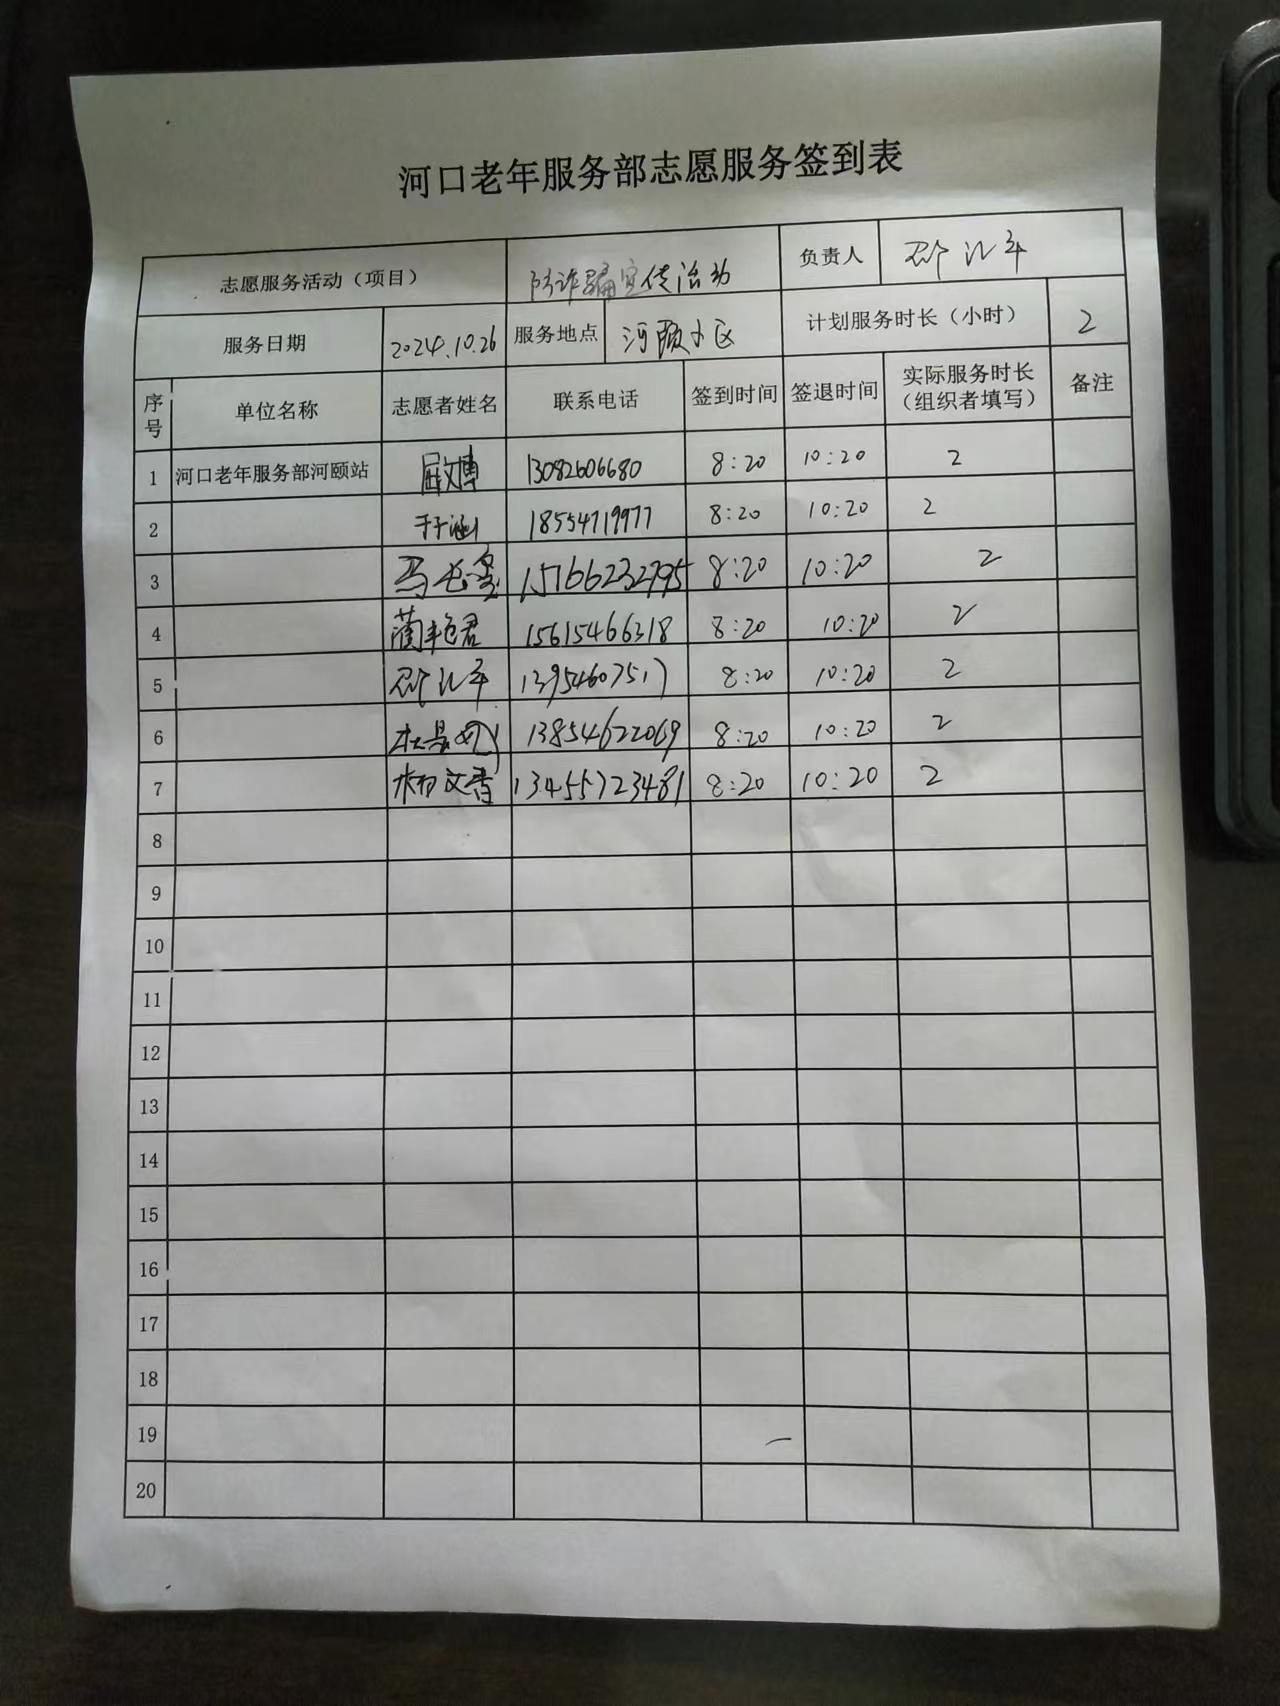 河口老年服务部志愿服务签到表
志愿服务活动（项目） 防诈骗宣传活动 负责人
服务日期 2024.10.26 服务地点 河颐小区 计划服务时长（小时） 2
序号 单位名称 志愿者姓名 联系电话 签到时间 签退时间 实际服务时长（组织者填写） 备注
1 河口老年服务部河颐站 屈文博 13082606680 8:20 10:20 2
2 于子涵 18554719977 8:20 10:20 2
3 15166232795 8:20 10:20 2
4 蔺艳君 15615466318 8:20 10:20 2
5 13954607517 8:20 10:20 2
6 13854622069 8:20 10:20 2
7 13455723481 8:20 10:20 2
8
9
10
11
12
13
14
15
16
17
18
19
20